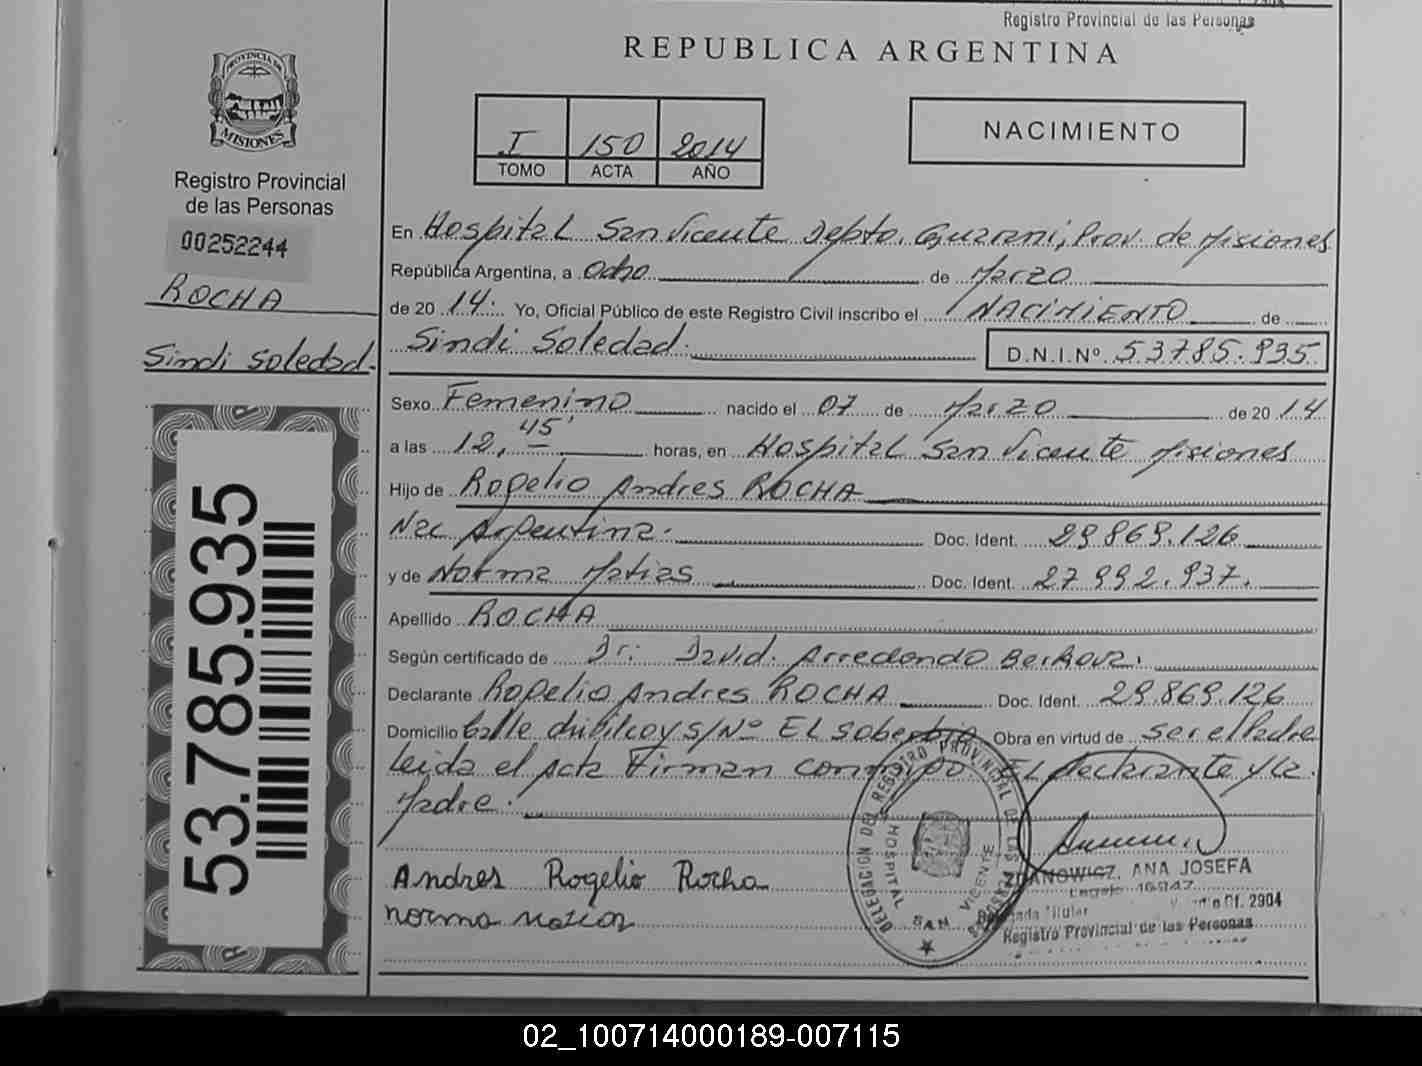 Registro Provincial de las Personas
REPUBLICA ARGENTINA
PROVINCIA DE
MISIONES
Registro Provincial
de las Personas
00252244
ROCHA
Sindi Soledad.
53.785.935
I 150 2014
TOMO ACTA AÑO
NACIMIENTO
En Hospital San Vicente Depto. Guarani, Prov. de Misiones
República Argentina, a Ocho de Marzo
de 20 14. Yo, Oficial Público de este Registro Civil inscribo el NACIMIENTO de
Sindi Soledad. D.N.I.Nº 53785.935
Sexo Femenino nacido el 07 de Marzo de 20 14
a las 12, 45' horas, en Hospital San Vicente Misiones
Hijo de Rogelio Andres ROCHA
Nac Argentina. Doc. Ident. 29.869.126
y de Norma Matias Doc. Ident. 27.992.937.
Apellido ROCHA
Según certificado de Dr. David Arredondo
Declarante Rogelio Andres ROCHA Doc. Ident. 29.869.126
Domicilio Calle s/Nº El Soberbio Obra en virtud de ser el Padre
Leida el Acta Firman conmigo El declarante y la
Madre.
Andres Rogelio Rocha
norma
DELEGACION DEL REGISTRO PROVINCIAL DE LAS PERSONAS
HOSPITAL SAN VICENTE
ANA JOSEFA
Titular
Registro Provincial de las Personas
02_100714000189-007115